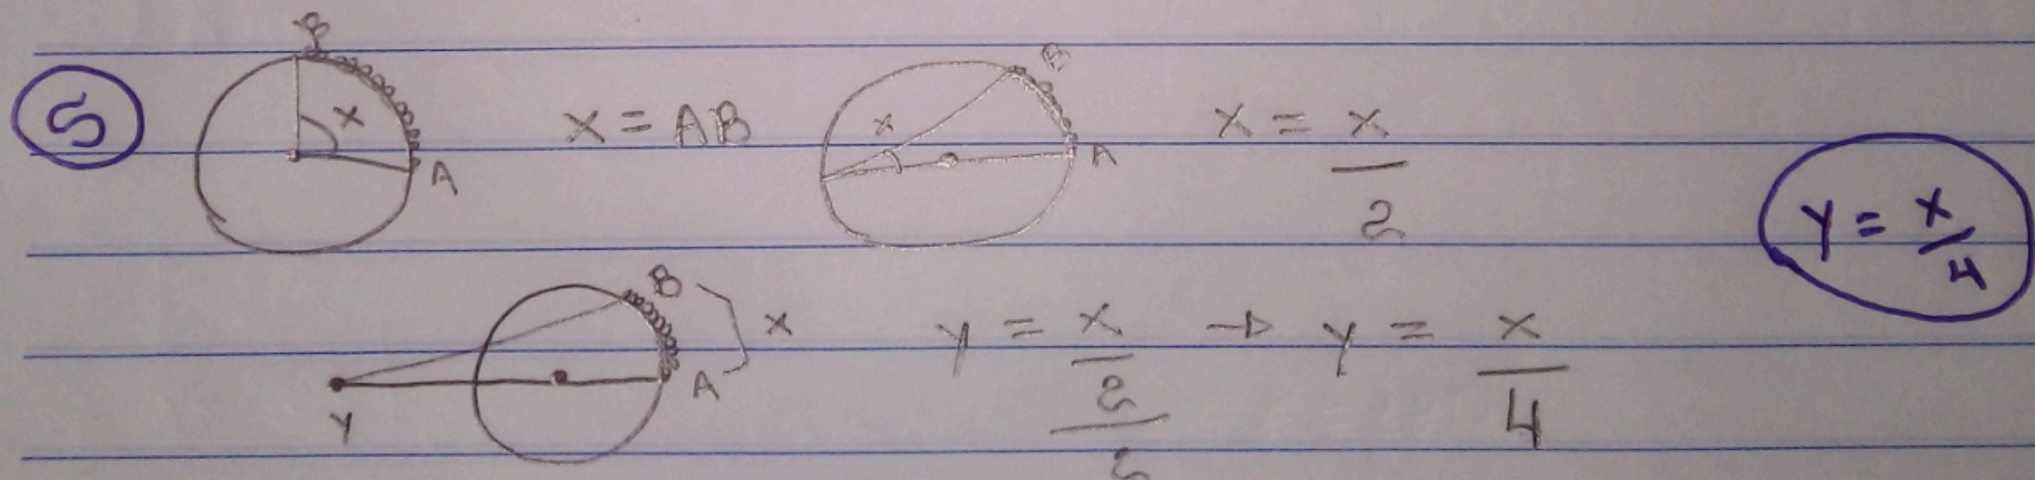 5
B
x
A
x = AB
B
x
A
x = x/2
y = x/4
B
x
A
y
y = x/2/2 → y = x/4